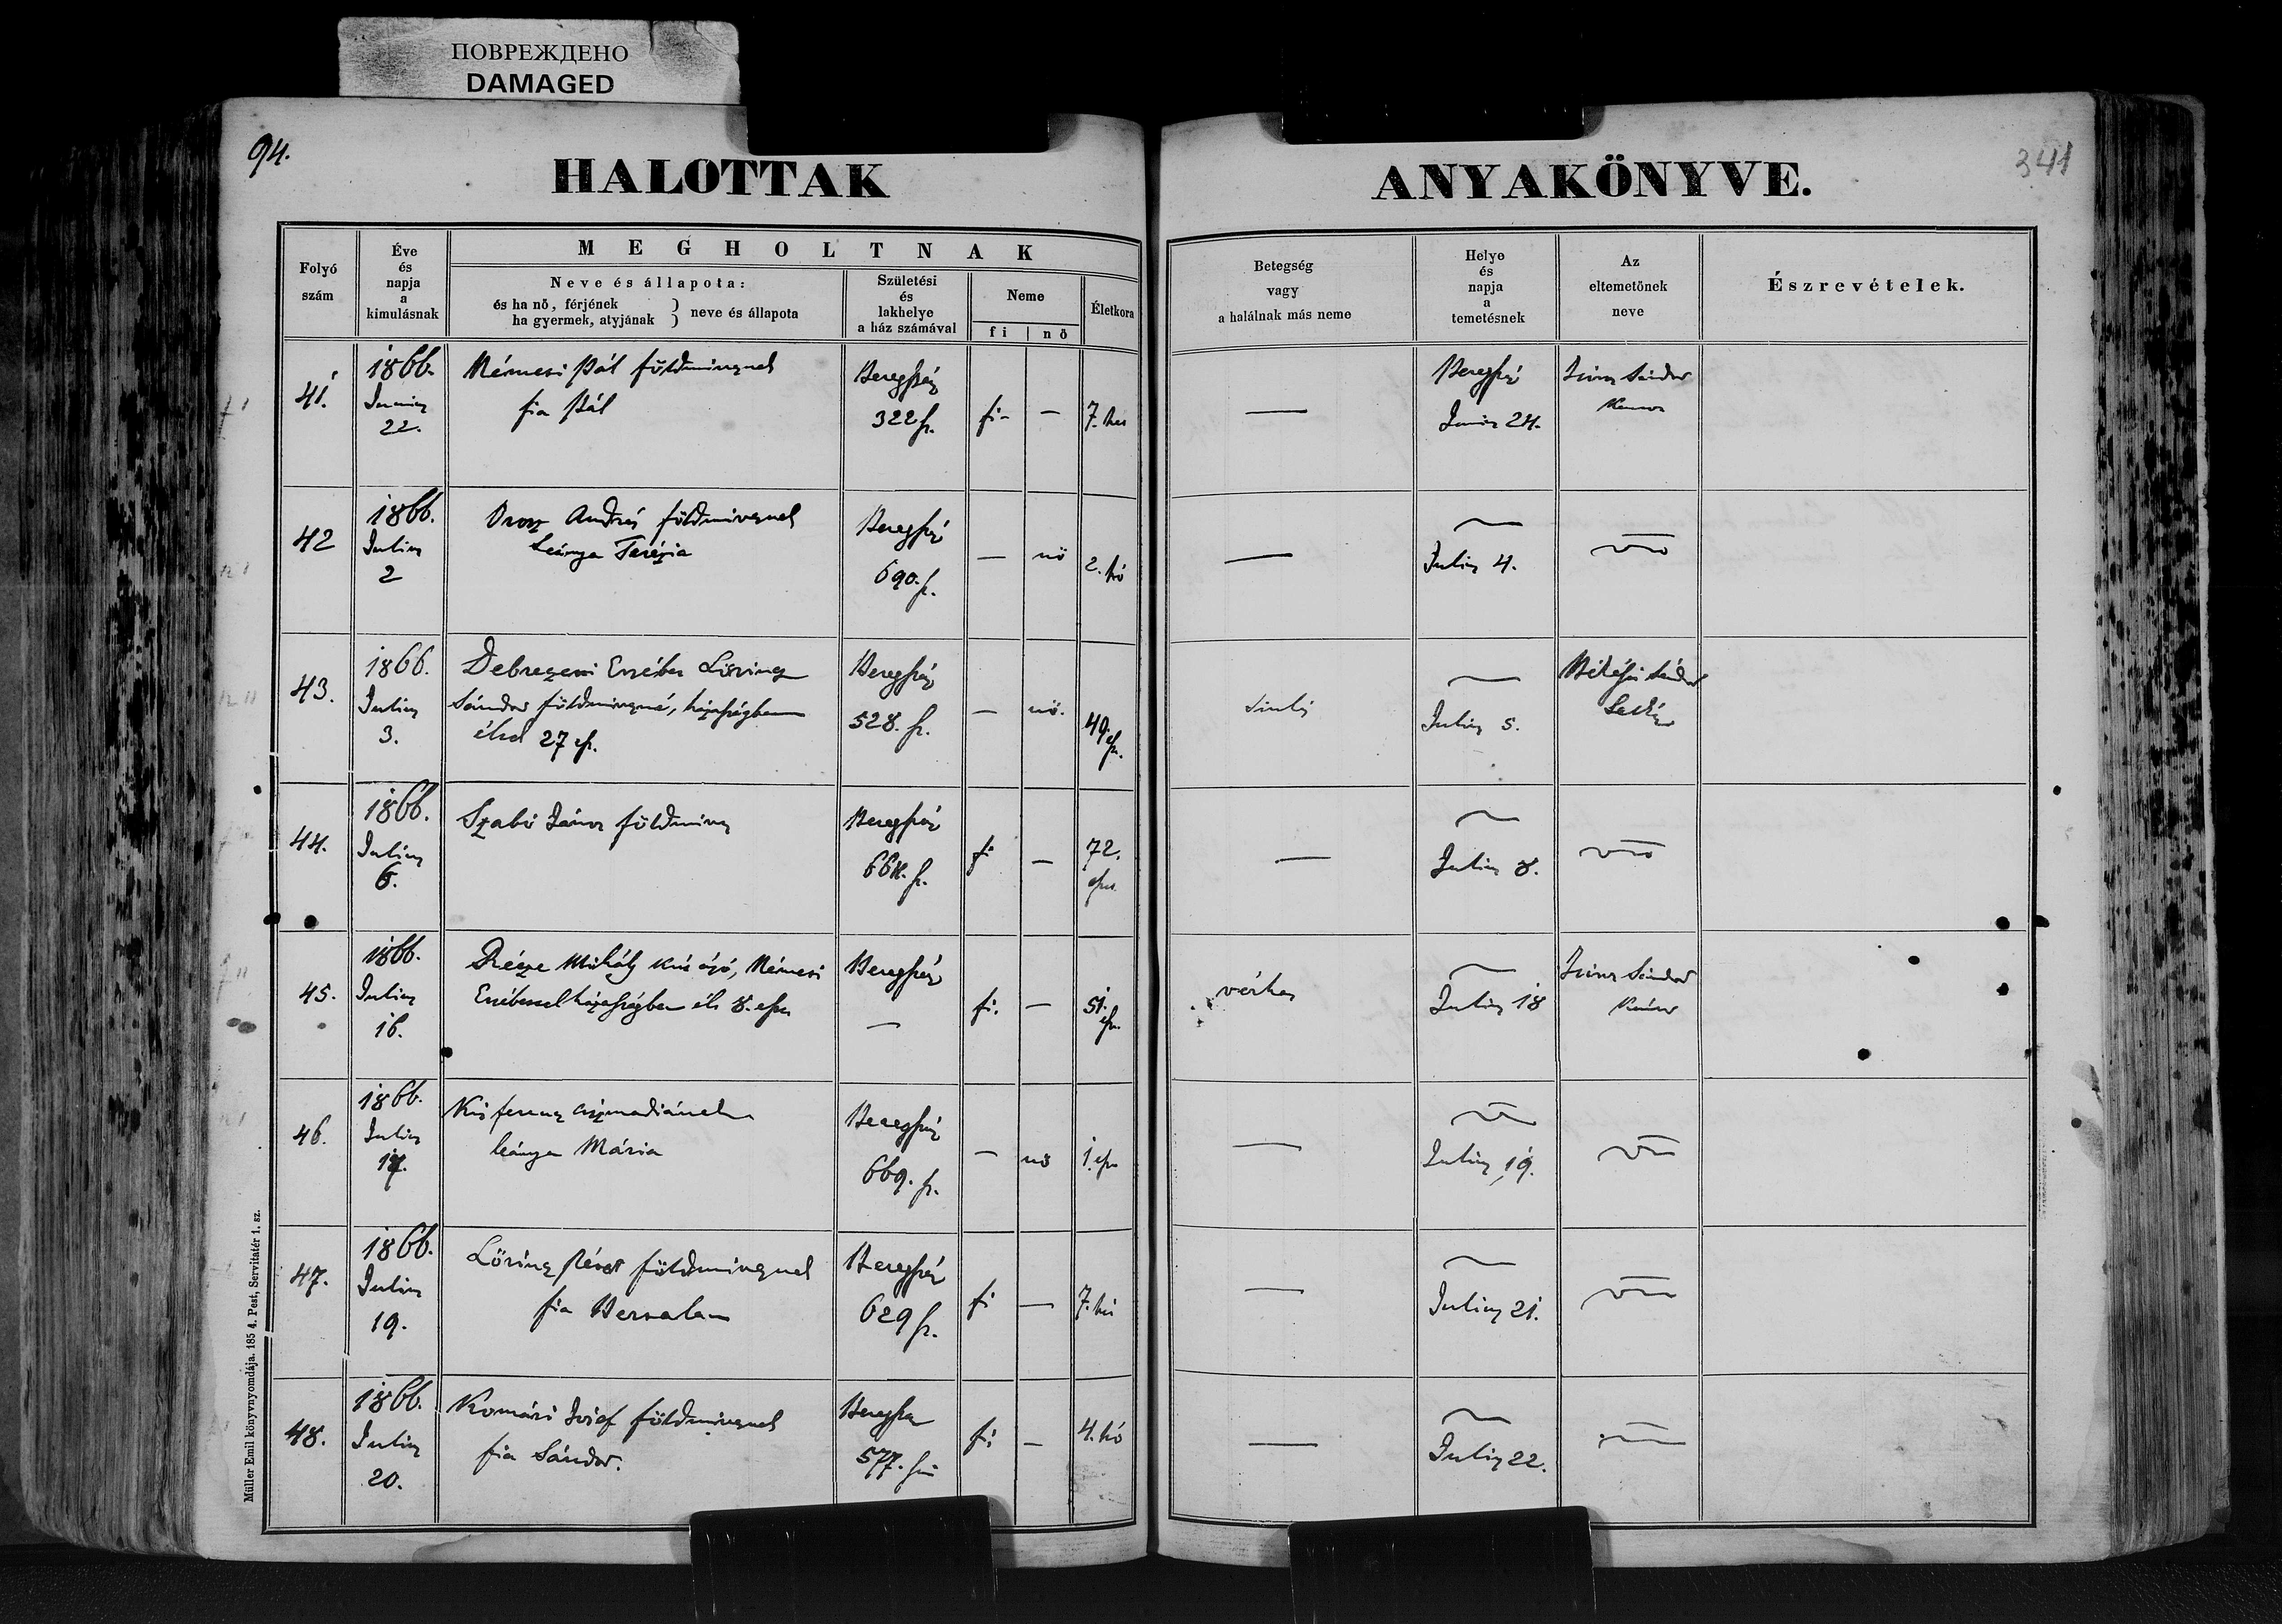 ПОВРЕЖДЕНО
DAMAGED
94.
HALOTTAK
ANYAKÖNYVE.
341
Folyó
szám
Éve
és
napja
a
kimulásnak
MEGHOLTNAK
Neve és állapota:
és ha nő, férjének
ha gyermek, atyjának
neve és állapota
Születési
és
lakhelye
a ház számával
Neme
fi
nő
Életkora
Betegség
vagy
a halálnak más neme
Helye
és
napja
a
temetésnek
Az
eltemetőnek
neve
Észrevételek.
41.
1866.
Junius
22.
Némesi Pál földmivesnek
fia Pál
Beregszáz
322 sz.
fi
—
7. hó
—
Beregszáz
Junius 24.
Sándor
42
1866.
Julius
2
Orosz András földmivesnek
leánya Terézia
Beregszáz
690. sz.
—
nő
2. hó
—
Julius 4.
43.
1866.
Julius
3.
Debreczeni Erzsébet Lőrincz
Sándor földmivesné, házasságban
élt 27 év.
Beregszáz
528. sz.
—
nő.
49. év.
Julius 5.
Sándor
44.
1866.
Julius
6.
Szabó János földmives
Beregszáz
fi
—
72.
éves
—
Julius 8.
45.
1866.
Julius
16.
Mihály Némesi
Erzsébettel házasságban élt 8. éves
Beregszáz
—
fi.
—
51. év.
vérhas
Julius 18
Sándor
46.
1866.
Julius
17.
Kis Ferencz csizmadiának
leánya Mária
Beregszáz
669. sz.
—
nő
1. év
—
Julius 19.
47.
1866.
Julius
19.
Lőrincz Péter földmivesnek
fia Bertalan
Beregszáz
629 sz.
fi
—
7. hó
—
Julius 21.
48.
1866.
Julius
20.
Komári József földmivesnek
fia Sándor.
Beregszáz
577. sz.
fi
—
4. hó
—
Julius 22.
Müller Emil könyvnyomdája. 185 4. Pest, Servitatér 1. sz.